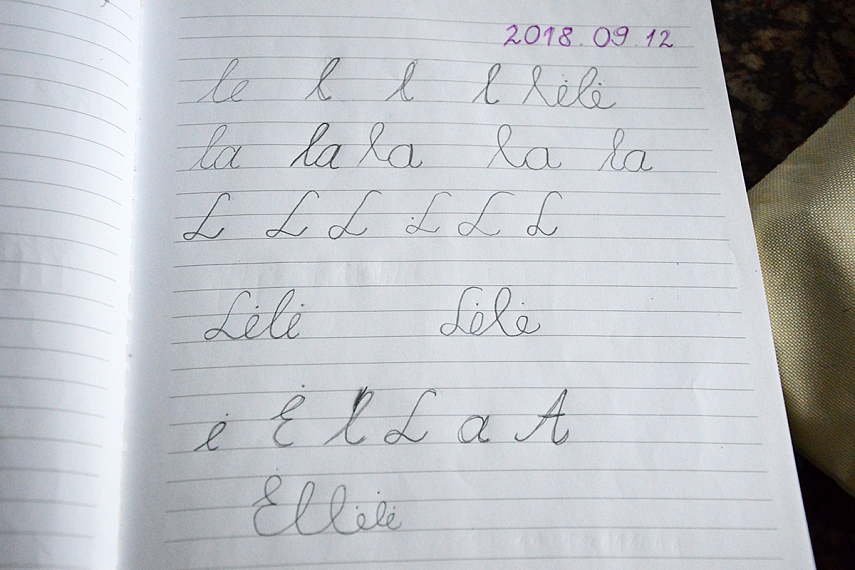 2018.09.12
le l l l lėlė
la la la la la
L L L L L L
Lėlė Lėlė
ė Ė l L a A
Ėllėlė